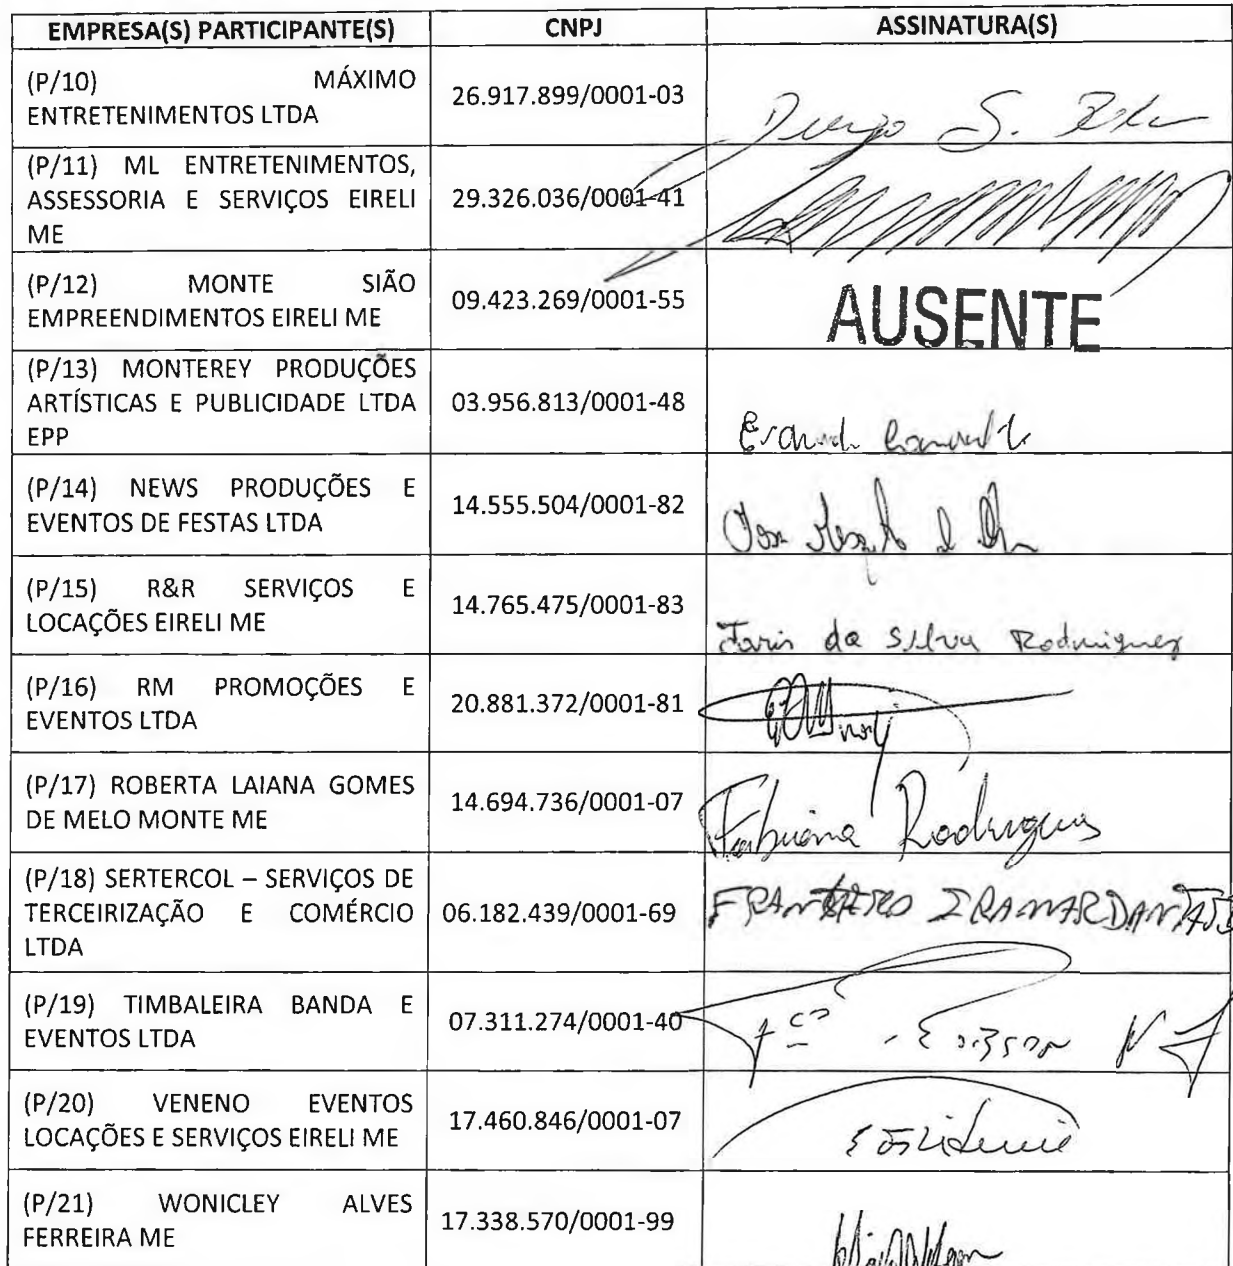 EMPRESA(S) PARTICIPANTE(S) CNPJ ASSINATURA(S)
(P/10) MÁXIMO
ENTRETENIMENTOS LTDA
26.917.899/0001-03
S.
(P/11) ML ENTRETENIMENTOS,
ASSESSORIA E SERVIÇOS EIRELI
ME
29.326.036/0001-41
(P/12) MONTE SIÃO
EMPREENDIMENTOS EIRELI ME
09.423.269/0001-55
AUSENTE
(P/13) MONTEREY PRODUÇÕES
ARTÍSTICAS E PUBLICIDADE LTDA
EPP
03.956.813/0001-48
(P/14) NEWS PRODUÇÕES E
EVENTOS DE FESTAS LTDA
14.555.504/0001-82
(P/15) R&R SERVIÇOS E
LOCAÇÕES EIRELI ME
14.765.475/0001-83
da Silva Rodrigues
(P/16) RM PROMOÇÕES E
EVENTOS LTDA
20.881.372/0001-81
(P/17) ROBERTA LAIANA GOMES
DE MELO MONTE ME
14.694.736/0001-07
Fabiana Rodrigues
(P/18) SERTERCOL – SERVIÇOS DE
TERCEIRIZAÇÃO E COMÉRCIO
LTDA
06.182.439/0001-69
(P/19) TIMBALEIRA BANDA E
EVENTOS LTDA
07.311.274/0001-40
(P/20) VENENO EVENTOS
LOCAÇÕES E SERVIÇOS EIRELI ME
17.460.846/0001-07
(P/21) WONICLEY ALVES
FERREIRA ME
17.338.570/0001-99